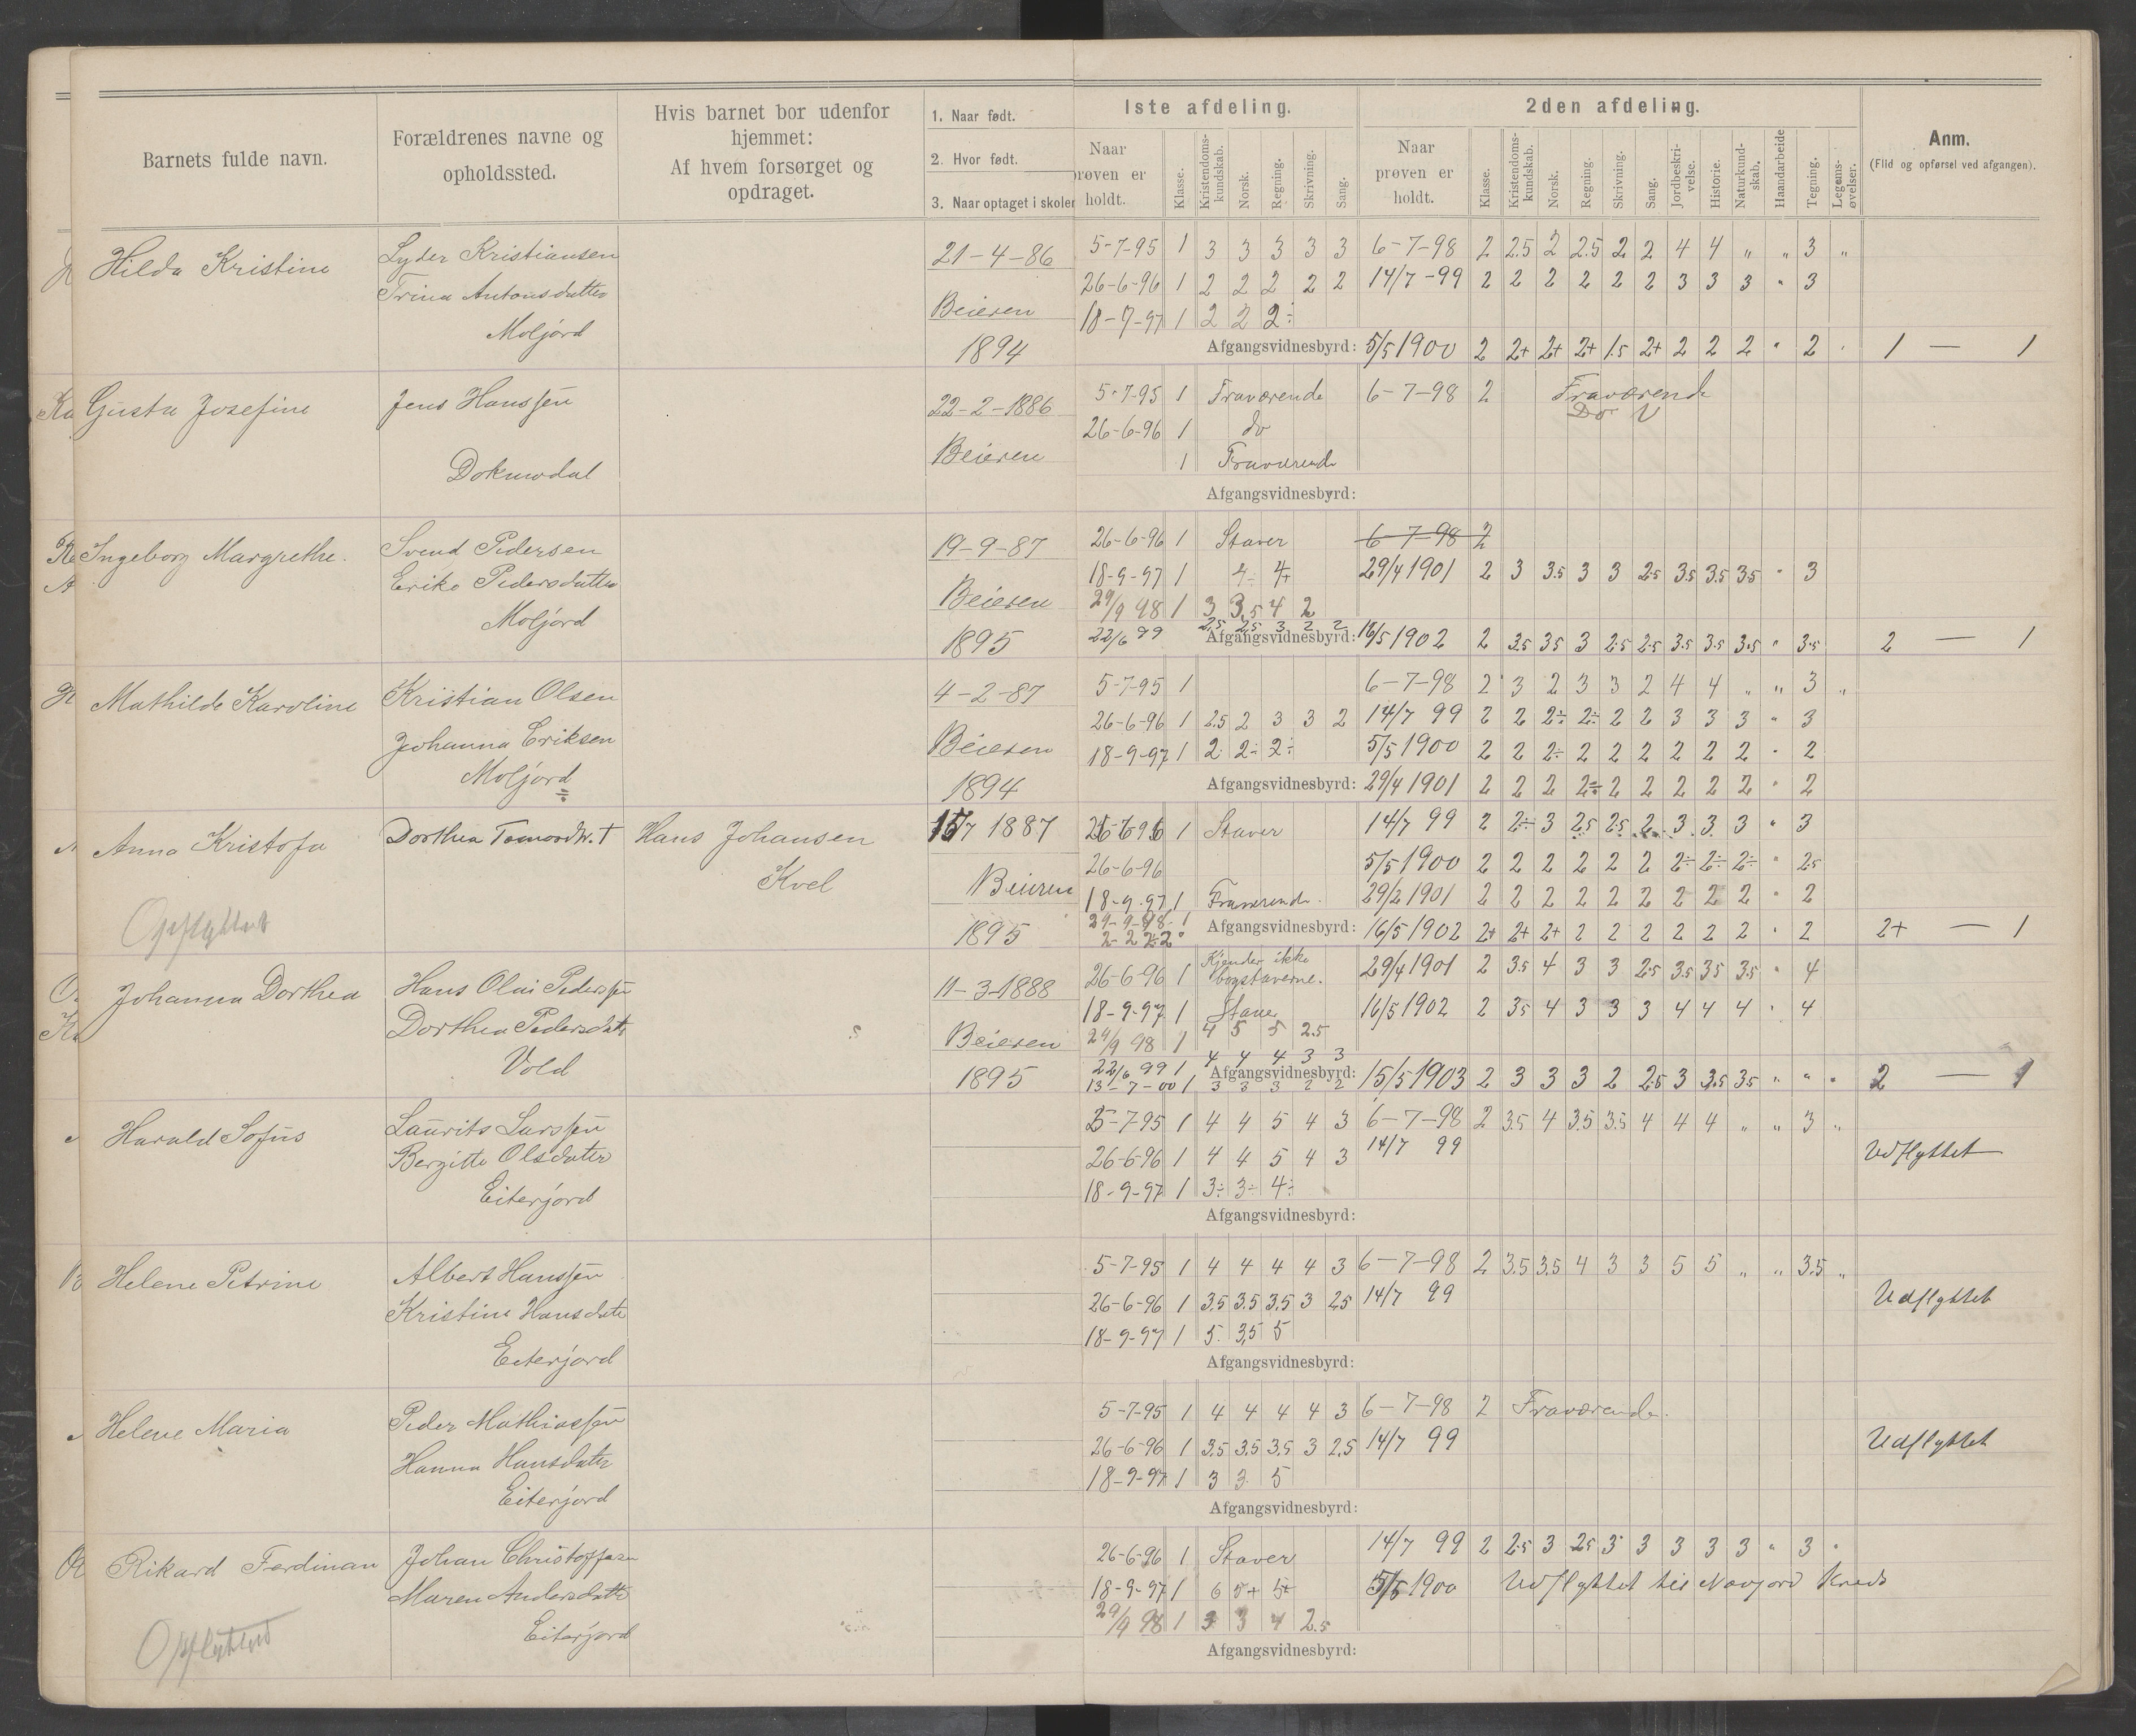 Barnets fulde navn.
Forældrenes navne og
opholdssted.
Hvis barnet bor udenfor
hjemmet:
Af hvem forsørget og
opdraget.
1. Naar født.
2. Hvor født.
3. Naar optaget i skolen
1ste afdeling.
Naar
prøven er
holdt.
Klasse.
Kristendoms-
kundskab.
Norsk.
Regning.
Skrivning.
Sang.
2den afdeling.
Naar
prøven er
holdt.
Klasse.
Kristendoms-
kundskab.
Norsk.
Regning.
Skrivning.
Sang.
Jordbeskri-
velse.
Historie.
Naturkund-
skab.
Haandarbeide
Tegning.
Legems-
øvelser.
Anm.
(Flid og opførsel ved afgangen).
Hilda Kristine
Lyder Kristiansen
Trina Antonsdatter
Moljord
21-4-86
Beieren
1894
5-7-95 1 3 3 3 3 3 6-7-98 2 2.5 2 2.5 2 2 4 4 „ „ 3 „
26-6-96 1 2 2 2 2 2 14/7-99 2 2 2 2 2 2 3 3 3 " 3
18-9-97 1 2 2 2÷
Afgangsvidnesbyrd: 5/5 1900 2 2+ 2+ 2+ 1.5 2+ 2 2 2 " 2 . 1 — 1
Gusta Josefine
Jens Hanssen
22-2-1886
Beieren
5-7-95 1 Fraværende 6-7-98 2 Fraværende
Do
26-6-96 1 do
1 Fraværende
Afgangsvidnesbyrd:
Ingeborg Margrethe.
Svend Pedersen
Erike Pedersdatter
Moljord
19-9-87
Beieren
1895
26-6-96 1 Staver 6-7-98 2
18-9-97 1 4÷ 4+ 29/4 1901 2 3 3.5 3 3 2.5 3.5 3.5 3.5 " 3
29/9 98 1 3 3,5 4 2
22/6 99 2,5 2,5 3 2 2
Afgangsvidnesbyrd: 16/5 1902 2 3.5 3.5 3 2.5 2.5 3.5 3.5 3.5 " 3.5 2 — 1
Mathilde Karoline
Kristian Olsen
Johanna Eriksen
Moljord
4-2-87
Beieren
1894
5-7-95 1 6-7-98 2 3 2 3 3 2 4 4 „ „ 3 „
26-6-96 1 2.5 2 3 3 2 14/7 99 2 2 2÷ 2÷ 2 2 3 3 3 " 3
18-9-97 1 2 2÷ 2÷ 5/5 1900 2 2 2÷ 2 2 2 2 2 2 " 2
Afgangsvidnesbyrd: 29/4 1901 2 2 2 2÷ 2 2 2 2 2 " 2
Anna Kristofa
Dorthea †
Hans Johansen
Kvel
Opflyttet
1887
Beieren
1895
1 Staver 14/7 99 2 2÷ 3 2.5 2.5 2 3 3 3 " 3
26-6-96 5/5 1900 2 2 2 2 2 2 2÷ 2÷ 2÷ " 2.5
18-9-97 1 Fraværende. 29/2 1901 2 2 2 2 2 2 2 2 2 " 2
29-9-98 1
2÷ 2 2÷ 2
Afgangsvidnesbyrd: 16/5 1902 2+ 2+ 2+ 2 2 2 2 2 2 " 2 2+ — 1
Johanna Dorthea
Hans Olai Pederssen
Dorthea Pedersdatr
Vold
11-3-1888
Beieren
1895
26-6-96 1 Kjender ikke
bogstaverne. 29/4 1901 2 3.5 4 3 3 2.5 3.5 3.5 3.5 " 4
18-9-97 1 Staver 16/5 1902 2 3.5 4 3 3 3 4 4 4 " 4
29/9 98 1 4 5 5 2.5
22/6 99 1 4 4 4 3 3
13-7-00 1 3 3 3 2 2
Afgangsvidnesbyrd: 15/5 1903 2 3 3 3 2 2.5 3 3.5 3.5 " " " 2 — 1
Harald Sofus
Laurits Larssen
Bergitte Olsdatter
Eiterjord
5-7-95 1 4 4 5 4 3 6-7-98 2 3.5 4 3.5 3.5 4 4 4 „ „ 3 „
26-6-96 1 4 4 5 4 3 14/7 99 Udflyttet
18-9-97 1 3÷ 3÷ 4÷
Afgangsvidnesbyrd:
Helene Petrine
Albert Hanssen
Kristine Hansdatr
Eiterjord
5-7-95 1 4 4 4 4 3 6-7-98 2 3.5 3.5 4 3 3 5 5 „ „ 3.5 „
26-6-96 1 3.5 3.5 3.5 3 2.5 14/7 99 Udflyttet
18-9-97 1 5 3,5 5
Afgangsvidnesbyrd:
Helene Maria
Peder Mathiassen
Hanna Hansdatter
Eiterjord
5-7-95 1 4 4 4 4 3 6-7-98 2 Fraværende.
26-6-96 1 3.5 3.5 3.5 3 2.5 14/7 99 Udflyttet
18-9-97 1 3 3 5
Afgangsvidnesbyrd:
Rikard Ferdinan
Johan Christoffersen
Maren Andersdatter
Eiterjord
Opflyttet
26-6-96 1 Staver 14/7 99 2 2.5 3 2.5 3 3 3 3 3 " 3 "
18-9-97 1 6 5+ 5+ 5/5 1900 Udflyttet til Kreds
29/9 98 1 3 3 4 2.5
Afgangsvidnesbyrd: